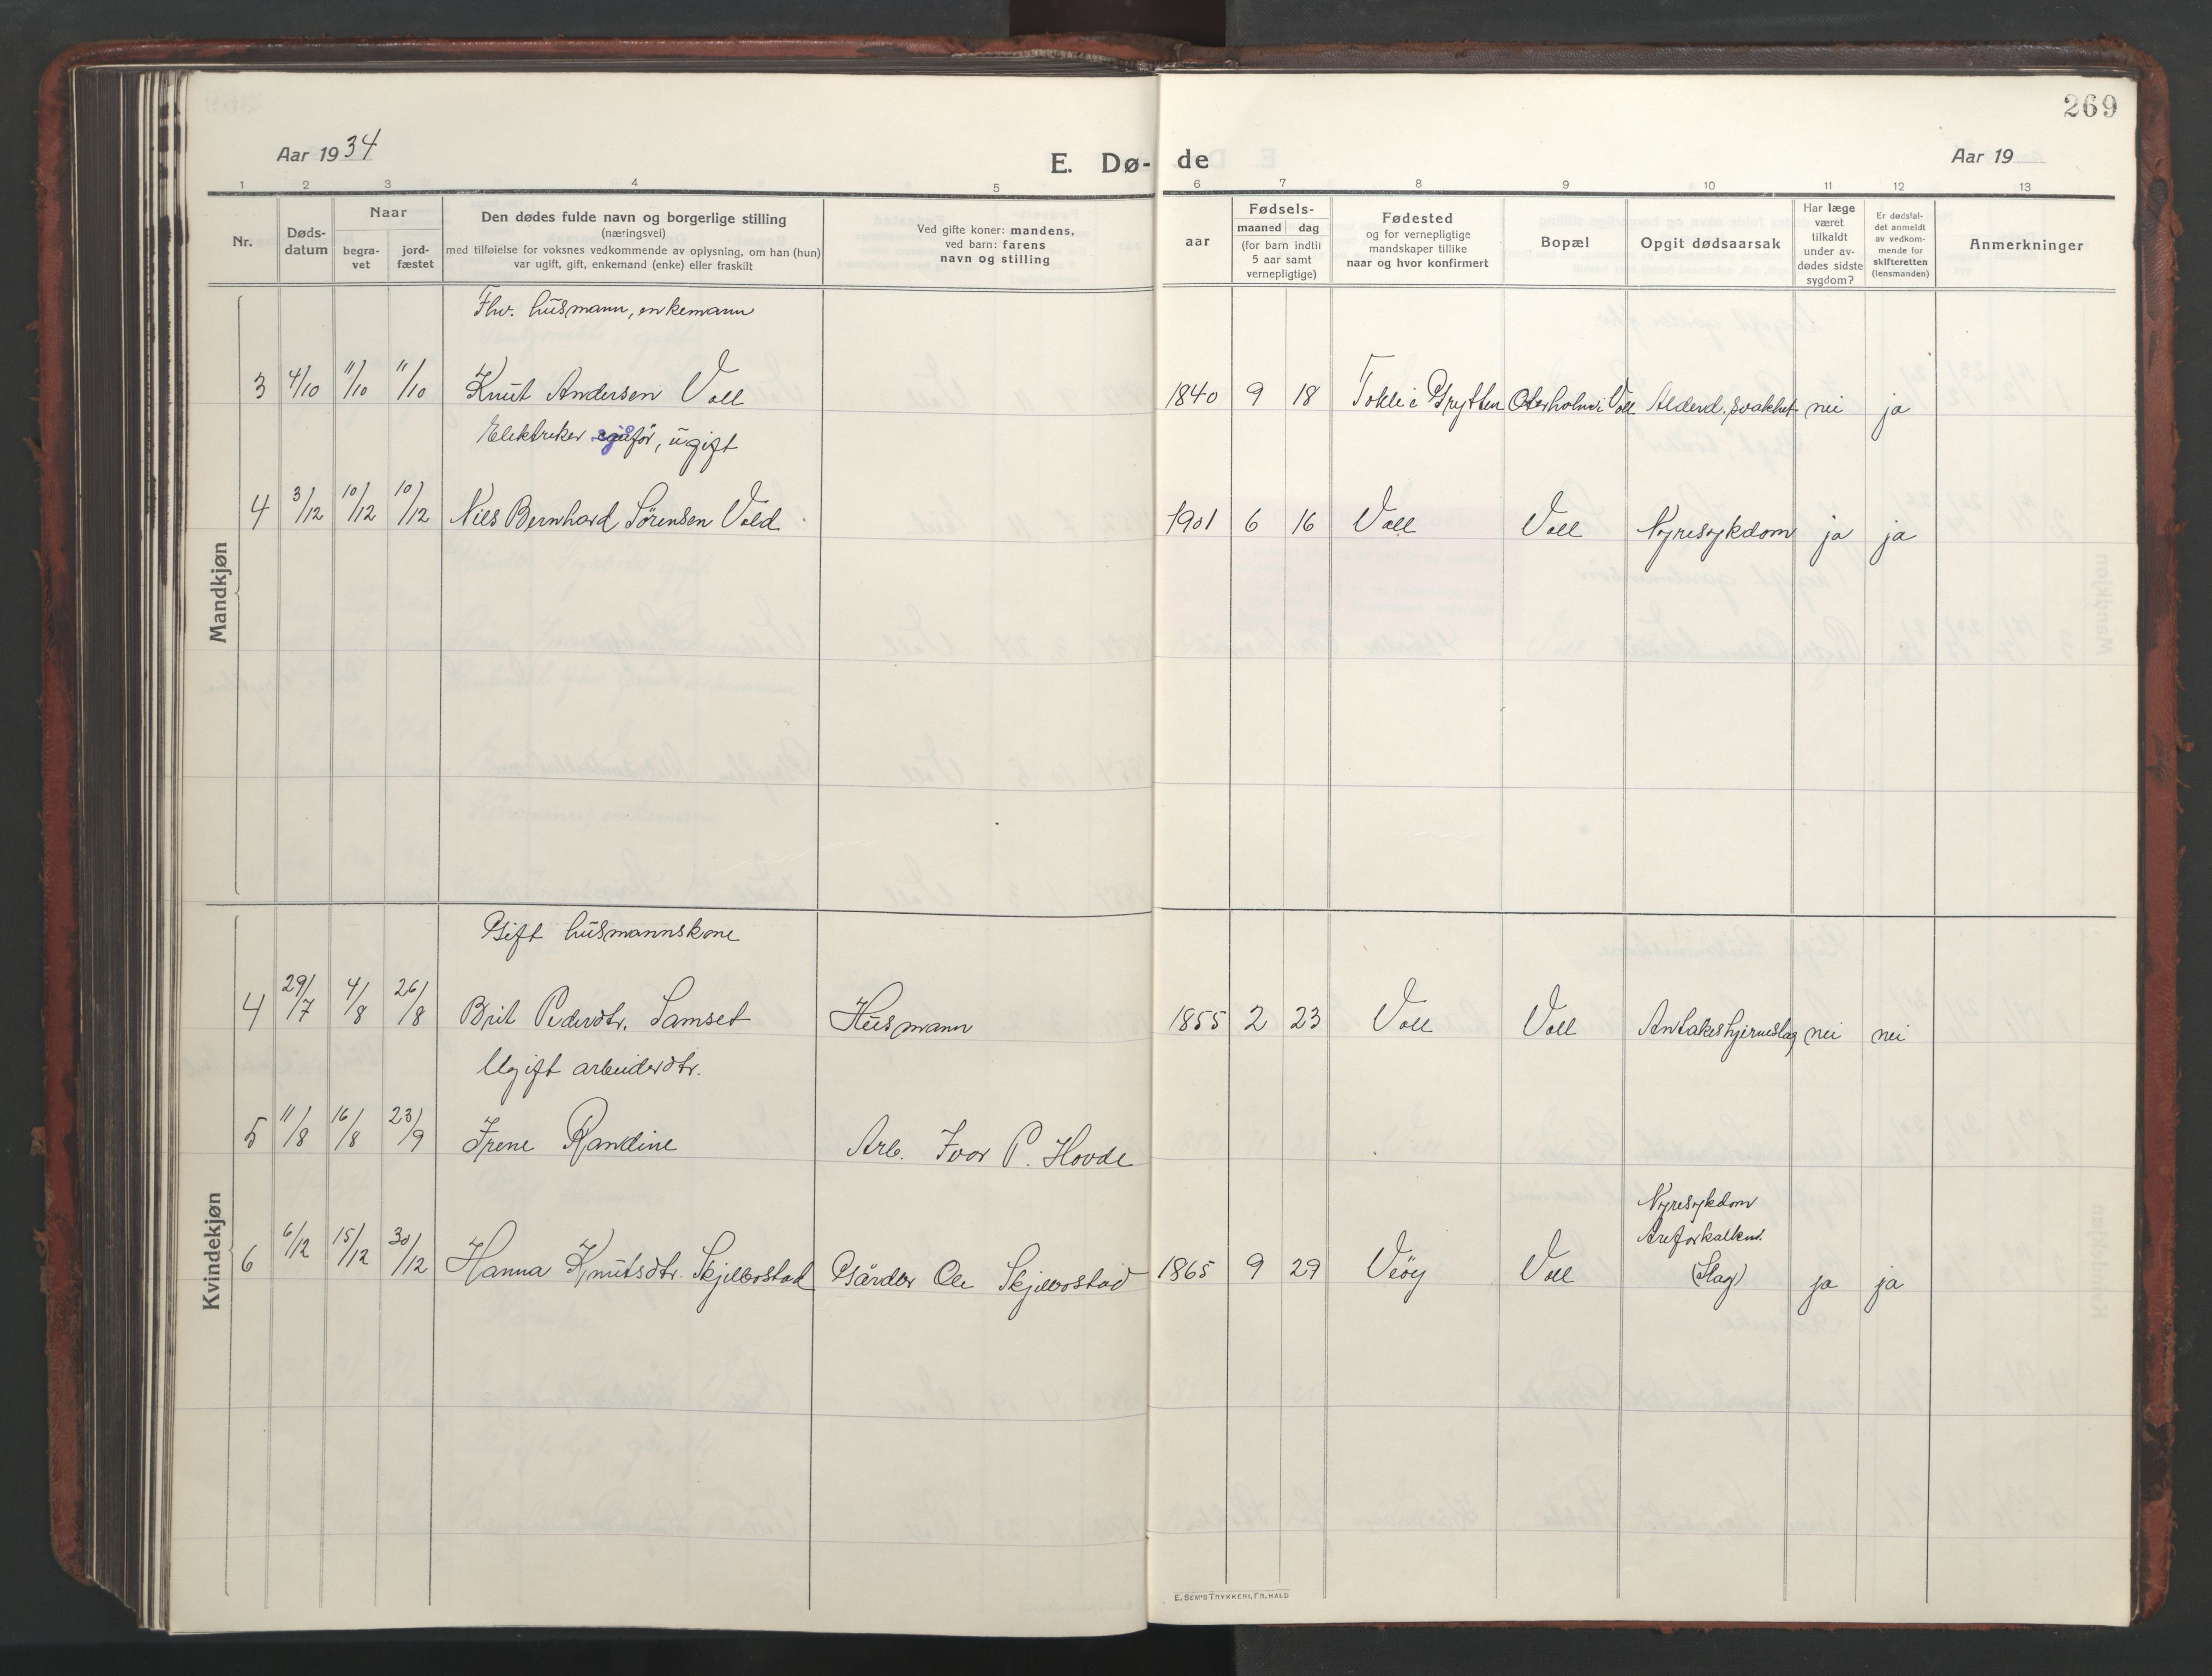 269
Aar 1934
E. Dø-
de
Aar 19
1 2 3 4 5 6 7 8 9 10 11 12 13
Nr.
Døds-
datum
Naar
begra-
vet
jord-
fæstet
Den dødes fulde navn og borgerlige stilling
(næringsvei)
med tilføielse for voksnes vedkommende av oplysning, om han (hun)
var ugift, gift, enkemand (enke) eller fraskilt
Ved gifte koner: mandens,
ved barn: farens
navn og stilling
aar
Fødsels-
maaned dag
(for barn indtil
5 aar samt
vernepligtige)
Fødested
og for vernepligtige
mandskaper tillike
naar og hvor konfirmert
Bopæl
Opgit dødsaarsak
Har læge
været
tilkaldt
under av-
dødes sidste
sygdom?
Er dødsfal-
det anmeldt
av vedkom-
mende for
skifteretten
(lensmanden)
Anmerkninger
Mandkjøn
Fhv. husmann, enkemann
3 4/10 11/10 11/10 Knut Andersen Voll 1840 9 18 i Grytten i Voll Alderd. svakhet nei ja
Elektriker, ugift
4 3/12 10/12 10/12 Nils Bernhard Sørensen Vold 1901 6 16 Voll Voll Nyresykdom ja ja
Kvindekjøn
Gift husmannskone
4 29/7 4/8 26/8 Brit Pedersdtr. Samset Husmann 1855 2 23 Voll Voll Antakes hjerneslag nei nei
Ugift arbeiderdtr.
5 11/8 16/8 23/9 Irene Randine Arb. Ivar P. Hovde
Nyresykdom
Areforkalkn.
6 6/12 15/12 30/12 Hanna Knutsdtr. Skjelbostad Gårdbr Ole Skjelbostad 1865 9 29 Veøy Voll (Slag) ja ja
E. SEM'S TRYKKERI, FR.HALD